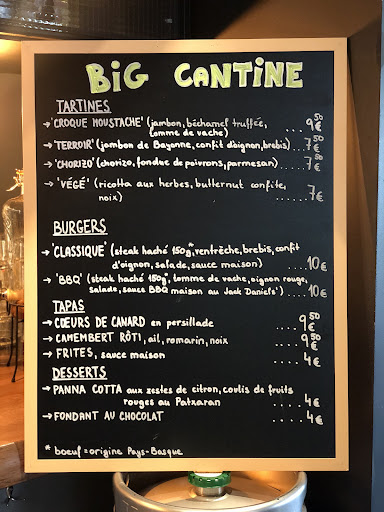 BIG CANTINE
TARTINES
→ 'CROQUE MOUSTACHE' (jambon, béchamel truffée,
tomme de vache) .... 9€50
→ 'TERROIR' (jambon de Bayonne, confit d'oignon, brebis) . 7€50
→ 'CHORIZO' (chorizo, fondue de poivrons, parmesan) .... 7€50
→ 'VÉGÉ' (ricotta aux herbes, butternut confite,
noix) .... 7€
BURGERS
→ 'CLASSIQUE' (steak haché 150g*, ventrèche, brebis, confit
d'oignon, salade, sauce maison) .... 10€
→ 'BBQ' (steak haché 150g*, tomme de vache, oignon rouge,
salade, sauce BBQ maison au Jack Daniels') .... 10€
TAPAS
→ CŒURS DE CANARD en persillade .... 9€50
→ CAMEMBERT RÔTI, ail, romarin, noix .... 9€50
→ FRITES, sauce maison .... 4€
DESSERTS
→ PANNA COTTA aux zestes de citron, coulis de fruits
rouges au Patxaran .... 4€
→ FONDANT AU CHOCOLAT .... 4€
* boeuf = origine Pays-Basque